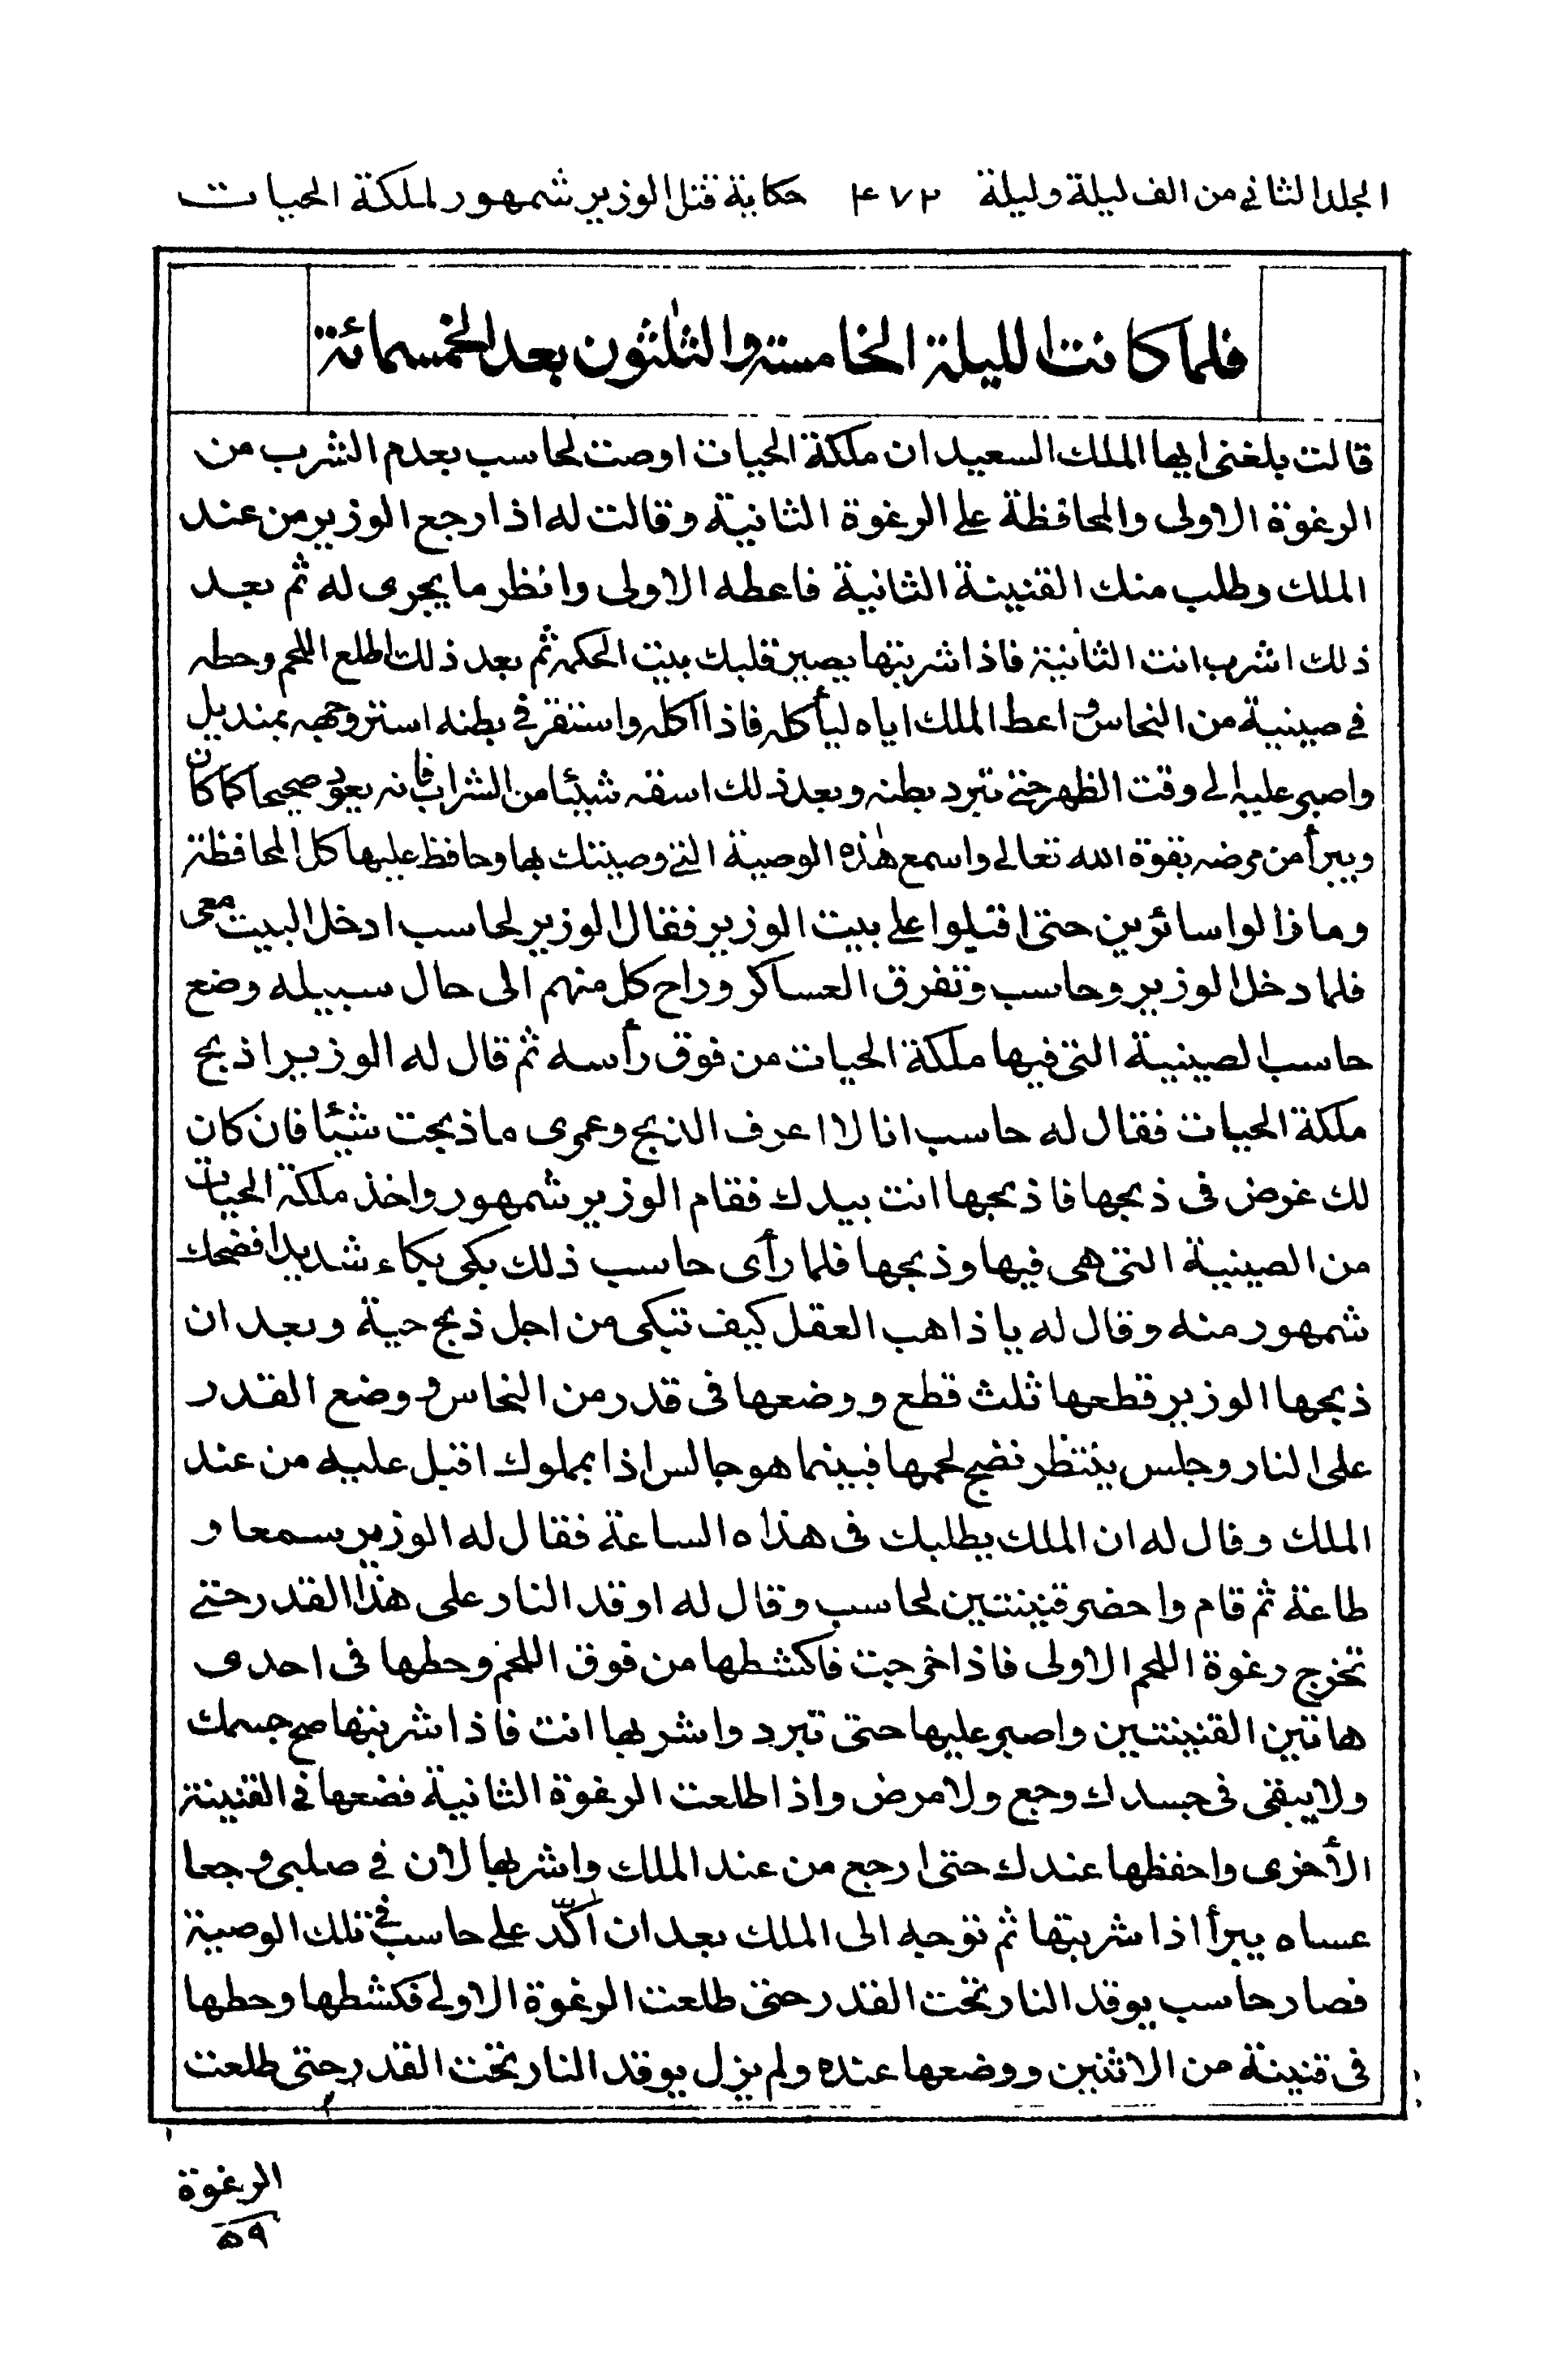 المجلد الثاني من الف ليلة وليلة ٤٧٢ حكاية قتل الوزير شمهور لملكة الحيات
فلما كانت الليلة الخامسة والثلثون بعد الخمسمائة
قالت بلغنى ايها الملك السعيد ان ملكة الحيات اوصت لحاسب بعدم الشرب من
الرغوة الاولى والمحافظة على الرغوة الثانية وقالت له اذا رجع الوزير من عند
الملك وطلب منك القنينة الثانية فاعطه الاولى وانظر ما يجرى له ثم بعد
ذلك اشرب انت الثانية فاذا شربتها يصير قلبك بيت الحكمة ثم بعد ذلك اطلع اللحم وحطه
فى صينية من النحاس و اعط الملك اياه ليأكله فاذا اكله واستقر فى بطنه استر وجهه بمنديل
واصبر عليه الى وقت الظهر حتى تبرد بطنه وبعد ذلك اسقه شيئا من الشراب فانه يعود صحيحا كما كان
ويبرأ من مرضه بقوة الله تعالى واسمع هذه الوصية التى وصيتك بها وحافظ عليها كل المحافظة
وما زالوا سائرين حتى اقبلوا على بيت الوزير فقال الوزير لحاسب ادخل البيت معى
فلما دخل الوزير وحاسب وتفرق العساكر وراح كل منهم الى حال سبيله وضع
حاسب الصينية التى فيها ملكة الحيات من فوق رأسه ثم قال له الوزير اذبح
ملكة الحيات فقال له حاسب انا لا اعرف الذبح وعمرى ما ذبحت شيئا فان كان
لك غرض فى ذبحها فاذبحها انت بيدك فقام الوزير شمهور واخذ ملكة الحيات
من الصينية التى هى فيها وذبحها فلما رأى حاسب ذلك بكى بكاء شديدا فضحك
شمهور منه وقال له يا ذاهب العقل كيف تبكى من اجل ذبح حية وبعد ان
ذبحها الوزير قطعها ثلث قطع ووضعها فى قدر من النحاس و وضع القدر
على النار وجلس ينتظر نضج لحمها فبينما هو جالس اذا بمملوك اقبل عليه من عند
الملك وقال له ان الملك يطلبك فى هذه الساعة فقال له الوزير سمعا و
طاعة ثم قام واحضر قنينتين لحاسب وقال له اوقد النار على هذا القدر حتى
تخرج رغوة اللحم الاولى فاذا خرجت فاكشطها من فوق اللحم وحطها فى احدى
هاتين القنينتين واصبر عليها حتى تبرد واشربها انت فاذا شربتها صح جسمك
ولا يبقى فى جسدك وجع ولا مرض واذا طلعت الرغوة الثانية فضعها فى القنينة
الأخرى واحفظها عندك حتى ارجع من عند الملك واشربها لان فى صلبى وجعا
عساه يبرأ اذا شربتها ثم توجه الى الملك بعد ان اكّد على حاسب فى تلك الوصية
فصار حاسب يوقد النار تحت القدر حتى طلعت الرغوة الاولى فكشطها وحطها
فى قنينة من الاثنين ووضعها عنده ولم يزل يوقد النار تحت القدر حتى طلعت
الرغوة
٥٩